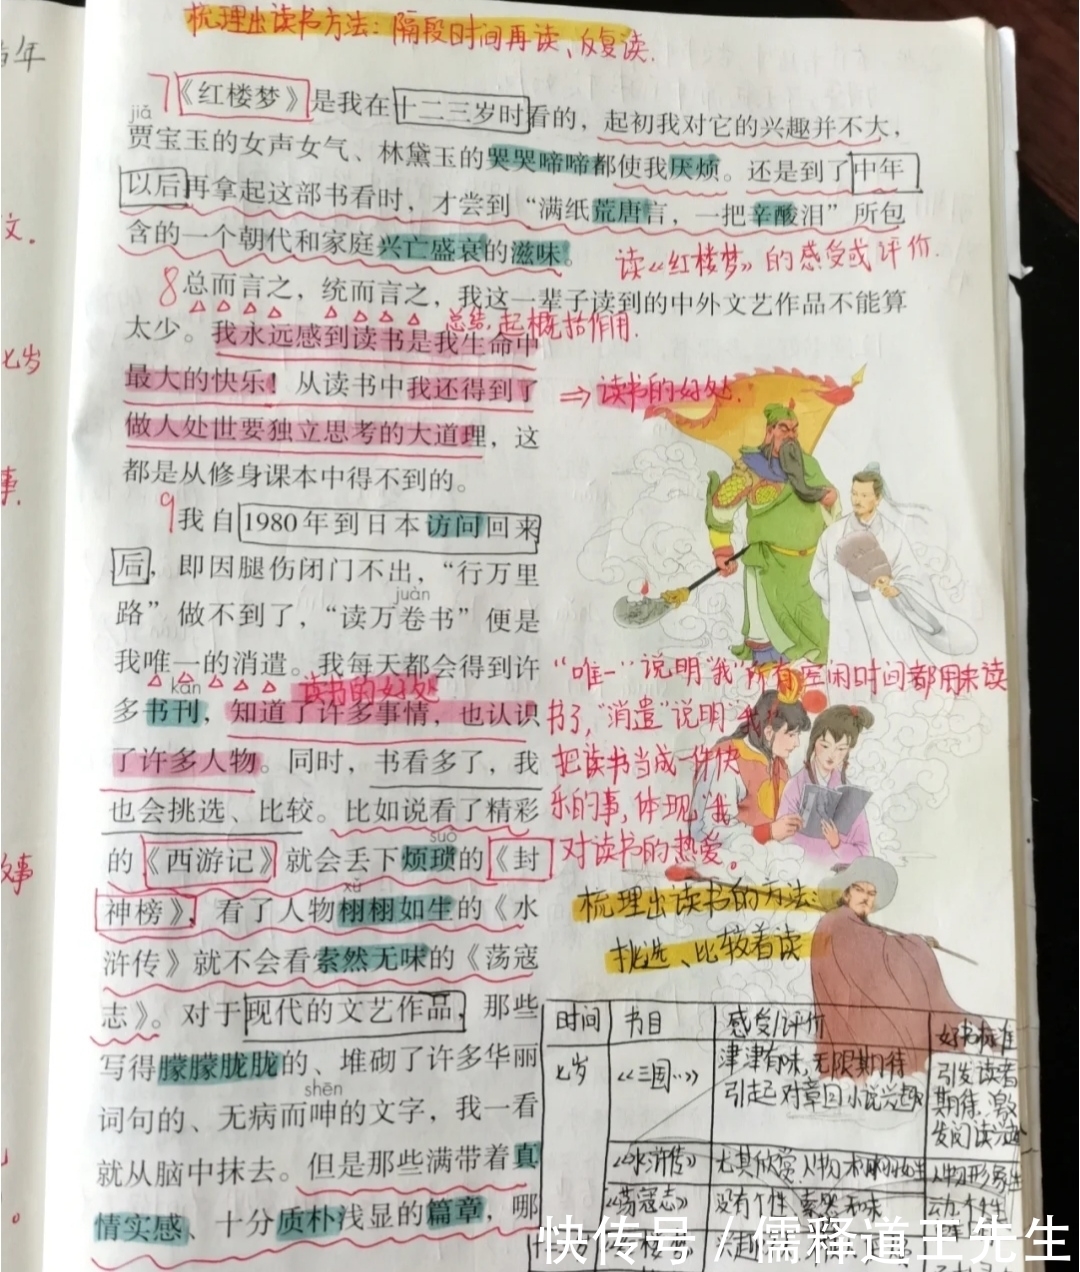 梳理出读书方法：隔段时间再读、反复读.
7《红楼梦》是我在十二三岁时看的，起初我对它的兴趣并不大，
jiǎ
贾宝玉的女声女气、林黛玉的哭哭啼啼都使我厌烦。还是到了中年
以后再拿起这部书看时，才尝到“满纸荒唐言，一把辛酸泪”所包
含的一个朝代和家庭兴亡盛衰的滋味。
读《红楼梦》的感受或评价.
8总而言之，统而言之，我这一辈子读到的中外文艺作品不能算
总结，起概括作用.
太少。我永远感到读书是我生命中
最大的快乐！从读书中我还得到了
⇒读书的好处.
做人处世要独立思考的大道理，这
都是从修身课本中得不到的。
9我自1980年到日本访问回来
后，即因腿伤闭门不出，“行万里
juàn
路”做不到了，“读万卷书”便是
我唯一的消遣。我每天都会得到许
kān
读书的好处
多书刊，知道了许多事情，也认识
了许多人物。同时，书看多了，我
也会挑选、比较。比如说看了精彩
suǒ
的《西游记》就会丢下烦琐的《封
xǔ
神榜》，看了人物栩栩如生的《水
浒传》就不会看索然无味的《荡寇
志》。对于现代的文艺作品，那些
写得朦朦胧胧的、堆砌了许多华丽
shēn
词句的、无病而呻的文字，我一看
就从脑中抹去。但是那些满带着真
情实感、十分质朴浅显的篇章，哪
“唯一”说明“我”所有空闲时间都用来读
书了，“消遣”说明“我”
把读书当成一件快
乐的事，体现“我”
对读书的热爱。
梳理出读书的方法：
挑选、比较着读
时间 书目 感受/评价 好书标准
七岁 《三国…》 津津有味，无限期待
引起对章回小说兴趣
引发读者
期待，激
发阅读兴趣
《水浒传》 尤其欣赏，人物栩栩如生 人物形象生
《荡寇志》 没有个性，索然无味
年
文.
七岁
事.
故事
快传号 / 儒释道王先生